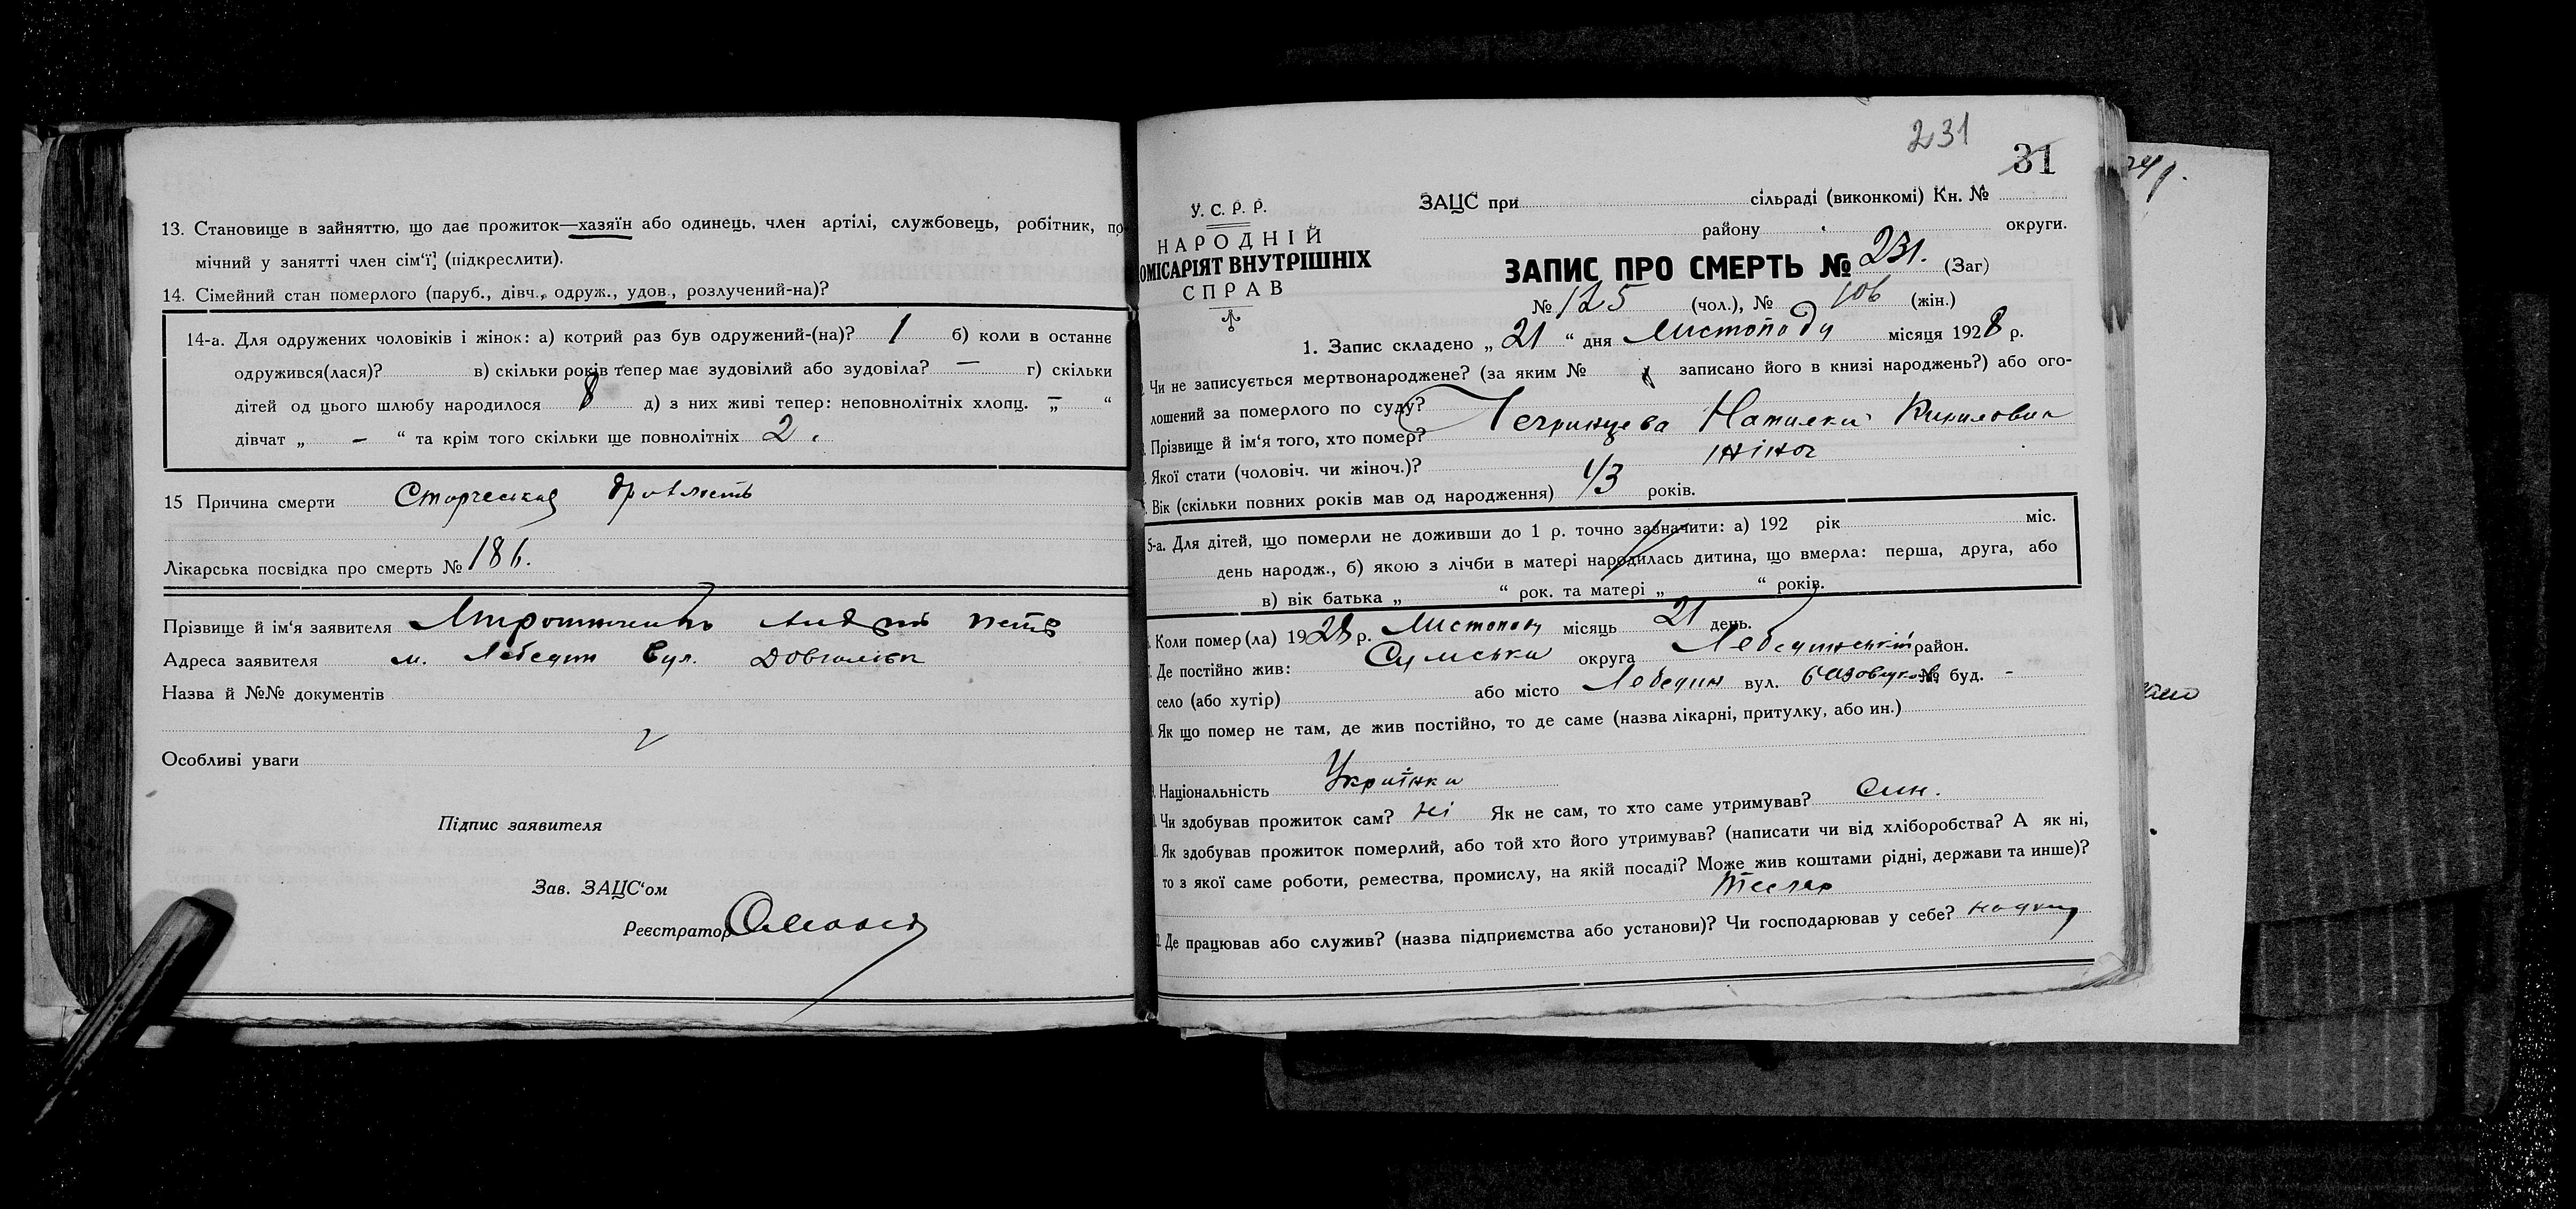 13. Становище в зайняттю, що дає прожиток—хазяїн або одинець, член артілі, службовець, робітник, по
мічний у занятті член сім'ї, (підкреслити).
14. Сімейний стан померлого (паруб., дівч., одруж., удов., розлучений-на)?
14-а. Для одружених чоловіків і жінок: а) котрий раз був одружений-(на)? 1 б) коли в останнє
одружився(лася)? в) скільки років тепер має зудовілий або зудовіла? — г) скільки
дітей од цього шлюбу народилося 8 д) з них живі тепер: неповнолітніх хлопц. „ — “
дівчат „ — “ та крім того скільки ще повнолітніх 2.
15 Причина смерти Старческая
Лікарська посвідка про смерть № 186.
Прізвище й ім'я заявителя
Адреса заявителя м. Лебедин вул.
Назва й №№ документів
Особливі уваги
Підпис заявителя
Зав. ЗАЦС'ом
Реєстратор
231
31
У. С. Р. Р.
НАРОДНІЙ
ОМІСАРІЯТ ВНУТРІШНІХ
СПРАВ
ЗАЦС при сільраді (виконкомі) Кн. №
району округи.
ЗАПИС ПРО СМЕРТЬ № 231. (Заг)
№ 125 (чол.), № 106 (жін.)
1. Запис складено „ 21 “ дня Листопаду місяця 1928 р.
Чи не записується мертвонароджене? (за яким № записано його в книзі народжень?) або ого-
лошений за померлого по суду?
Прізвище й ім'я того, хто помер? Кириловна
Якої стати (чоловіч. чи жіноч.)? жіноч
Вік (скільки повних років мав од народження) років.
5-а. Для дітей, що померли не доживши до 1 р. точно зазначити: а) 192 рік міс.
день народж., б) якою з лічби в матері народилась дитина, що вмерла: перша, друга, або
в) вік батька „ “ рок. та матері „ “ років.
Коли помер(ла) 1928 р. Листопаду місяць 21 день.
Де постійно жив: Сумська округа Лебединський район.
село (або хутір) або місто Лебедин вул. № буд. -
Як що помер не там, де жив постійно, то де саме (назва лікарні, притулку, або ин.)
Національність Українка
Чи здобував прожиток сам? Ні Як не сам, то хто саме утримував? Син.
Як здобував прожиток померлий, або той хто його утримував? (написати чи від хліборобства? А як ні,
то з якої саме роботи, ремества, промислу, на якій посаді? Може жив коштами рідні, держави та инше)?
тесляр
Де працював або служив? (назва підприємства або установи)? Чи господарював у себе?